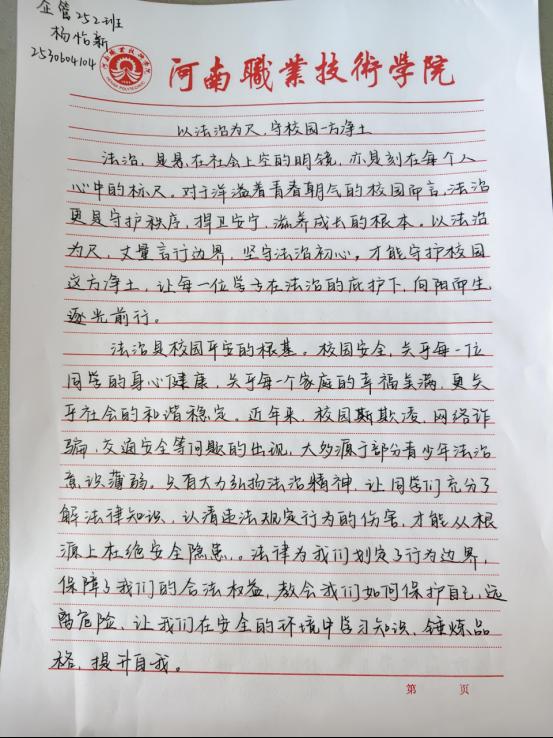 企管252班
杨怡新
2530604104
河南職業技術学院
以法治为尺，守校园一方净土
法治，是悬在社会上空的明镜，亦是刻在每个人
心中的标尺。对于洋溢着青春朝气的校园而言，法治
更是守护秩序，捍卫安宁，滋养成长的根本。以法治
为尺，丈量言行边界，坚守法治初心。才能守护校园
这方净土，让每一位学子在法治的庇护下，向阳而生，
逐光前行。
法治是校园平安的根基。校园安全，关乎每一位
同学的身心健康，关乎每一个家庭的幸福美满，更关
乎社会的和谐稳定。近年来，校园斯欺凌，网络诈
骗，交通安全等问题的出现，大多源于部分青少年法治
意识薄弱。只有大力弘扬法治精神，让同学们充分了
解法律知识，认清违法规定行为的伤害，才能从根
源上杜绝安全隐患。。法律为我们划定了行为边界，
保障了我们的合法权益，教会我们如何保护自己，远
离危险，让我们在安全的环境中学习知识，锤炼品
格，提升自我。
第 页